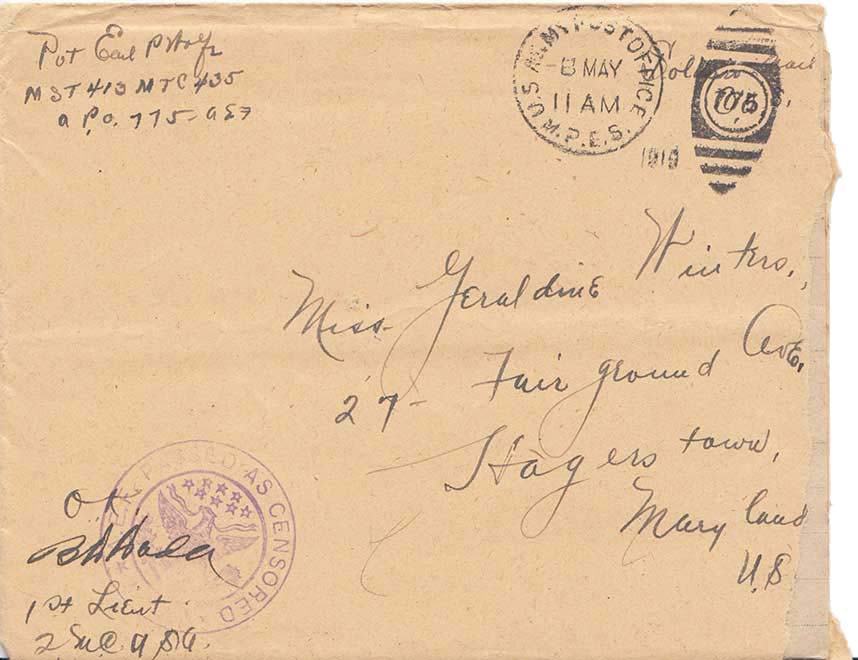 Pvt Earl P Wolfe
MST 413 MTC 435
a P.O. 775- AEF
U.S. ARMY POST OFFICE
M.P.E.S.
-8 MAY
11 AM
1919
775
Soldiers Mail
Miss Geraldine Winters,
27- Fair ground AVE.
Hagers town,
Mary land
U.S
PASSED AS CENSORED
O.K.
1st Lieut